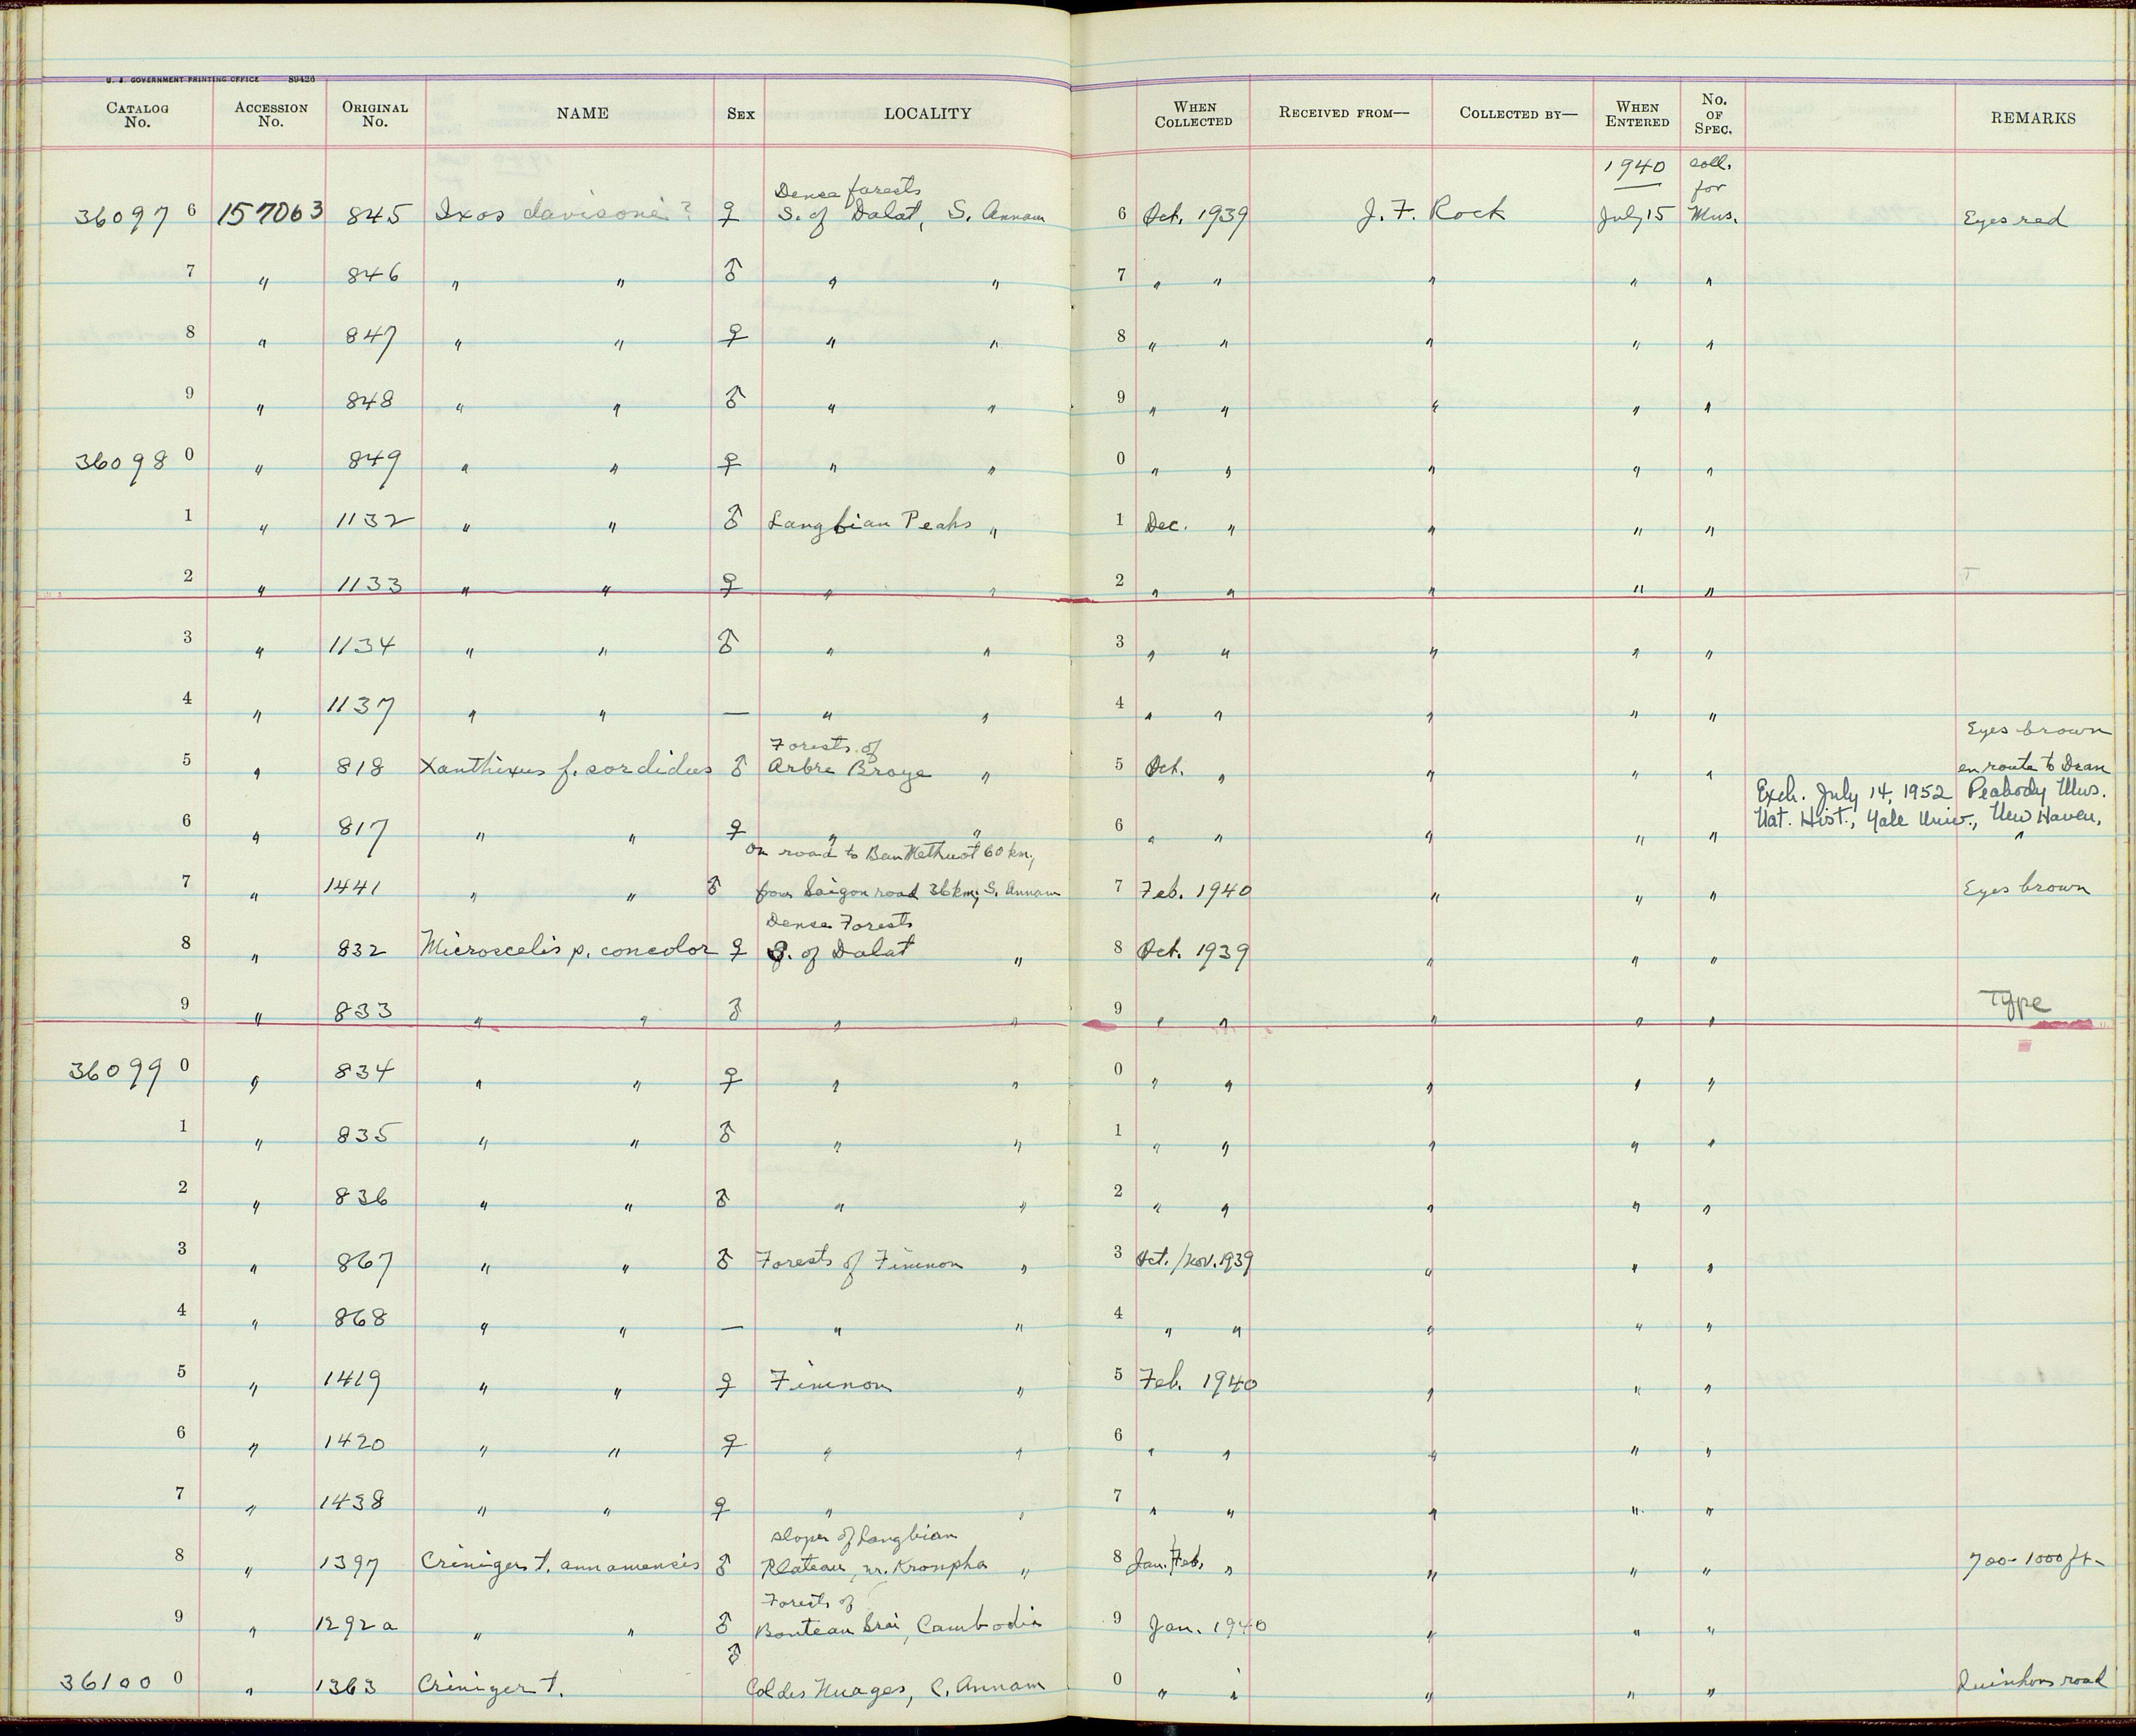 U. S. GOVERNMENT PRINTING OFFICE 89426
CATALOG No. ACCESSION No. ORIGINAL No. NAME SEX LOCALITY WHEN COLLECTED RECEIVED FROM— COLLECTED BY— WHEN ENTERED No. OF SPEC. REMARKS
1940 coll. for
Dense forests
36097 6 157063 845 Ixos davisoni ? ♀ S. of Dalat, S. Annam 6 Oct. 1939 J. F. Rock July 15 Mus. Eyes red
7 " 846 " " ♂ " " 7 " " " " "
8 " 847 " " ♀ " " 8 " " " " "
9 " 848 " " ♂ " " 9 " " " " "
36098 0 " 849 " " ♀ " " 0 " " " " "
1 " 1132 " " ♂ Langbian Peaks " 1 Dec. " " " "
2 " 1133 " " ♀ " " 2 " " " " " T
3 " 1134 " " ♂ " " 3 " " " " "
4 " 1137 " " — " " 4 " " " " "
Forests of Eyes brown
5 " 818 Xanthixus f. sordidus ♂ Arbre Broye " 5 Oct. " " " " en route to Dran
Exch. July 14, 1952 Peabody Mus.
Nat. Hist., Yale Univ., New Haven.
6 " 817 " " ♀ " " 6 " " " " " "
on road to Ban Methuot 60 km.,
7 " 1441 " " ♂ from Saigon road 36 km; S. Annam 7 Feb. 1940 " " " Eyes brown
Dense Forests
8 " 832 Microscelis p. concolor ♀ S. of Dalat " 8 Oct. 1939 " " "
9 " 833 " " ♂ " " 9 " " " " " Type
36099 0 " 834 " " ♀ " " 0 " " " " "
1 " 835 " " ♂ " " 1 " " " " "
2 " 836 " " ♂ " " 2 " " " " "
3 " 867 " " ♂ Forests of Fimnon " 3 Oct./Nov. 1939 " " "
4 " 868 " " — " " 4 " " " " "
5 " 1419 " " ♀ Fimnon " 5 Feb. 1940 " " "
6 " 1420 " " ♀ " " 6 " " " " "
7 " 1438 " " ♀ " " 7 " " " " "
slopes of Langbian
8 " 1397 Criniger t. annamensis ♂ Plateau, nr. Kronpha " 8 Jan. Feb. " " " " 700-1000 ft.
Forests of
9 " 1292a " " ♂ Bonteau Srai, Cambodia 9 Jan. 1940 " " "
36100 0 " 1363 Criniger t. ♂ Col des Nuages, C. Annam 0 " " " " " Quinhon road